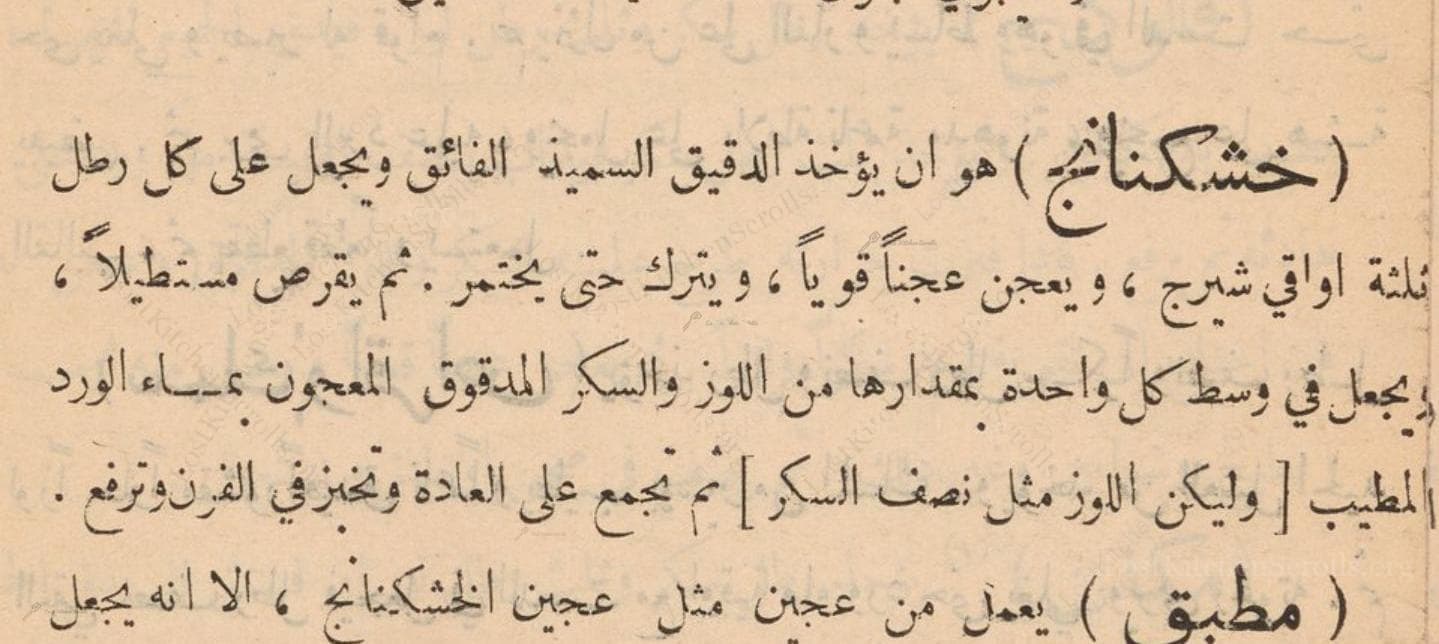 ( خشكنانج ) هو ان يؤخذ الدقيق السميذ الفائق ويجعل على كل رطل
ثلثة اواقي شيرج ، ويعجن عجناً قوياً ، ويترك حتى يختمر . ثم يقرص مستطيلاً ،
ويجعل في وسط كل واحدة بمقدارها من اللوز والسكر المدقوق المعجون بمـــاء الورد
المطيب [ وليكن اللوز مثل نصف السكر ] ثم تجمع على العادة وتخبز في الفرن وترفع .
( مطبق ) يعمل من عجين مثل عجين الخشكنانج ، الا انه يجعل